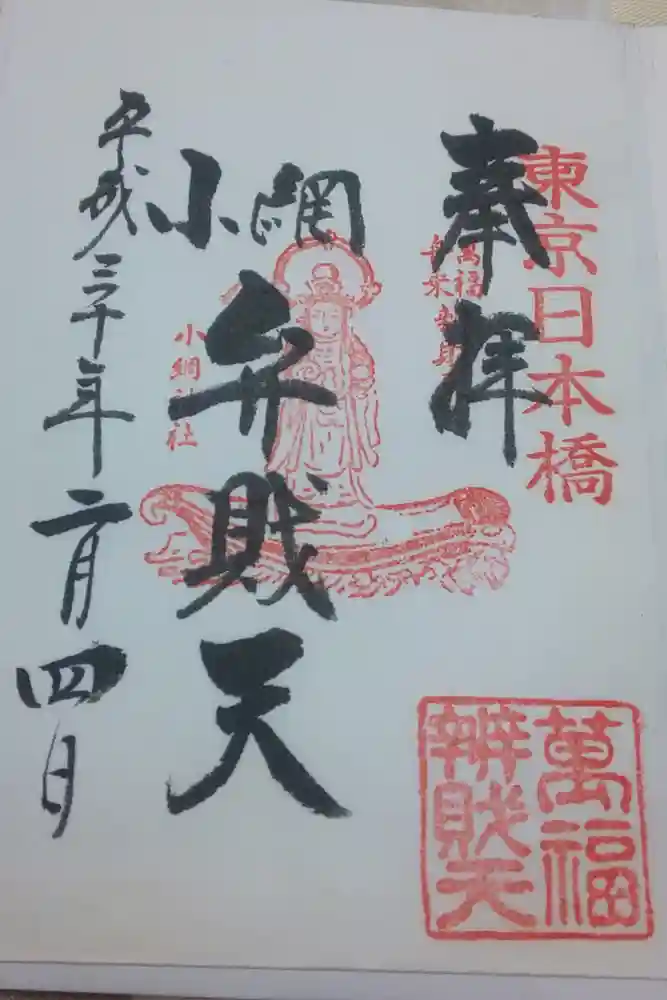 東京日本橋
奉拝
萬福
舟乗弁財
小網
弁財天
小網神社
平成三十年二月四日
萬福
辨財天